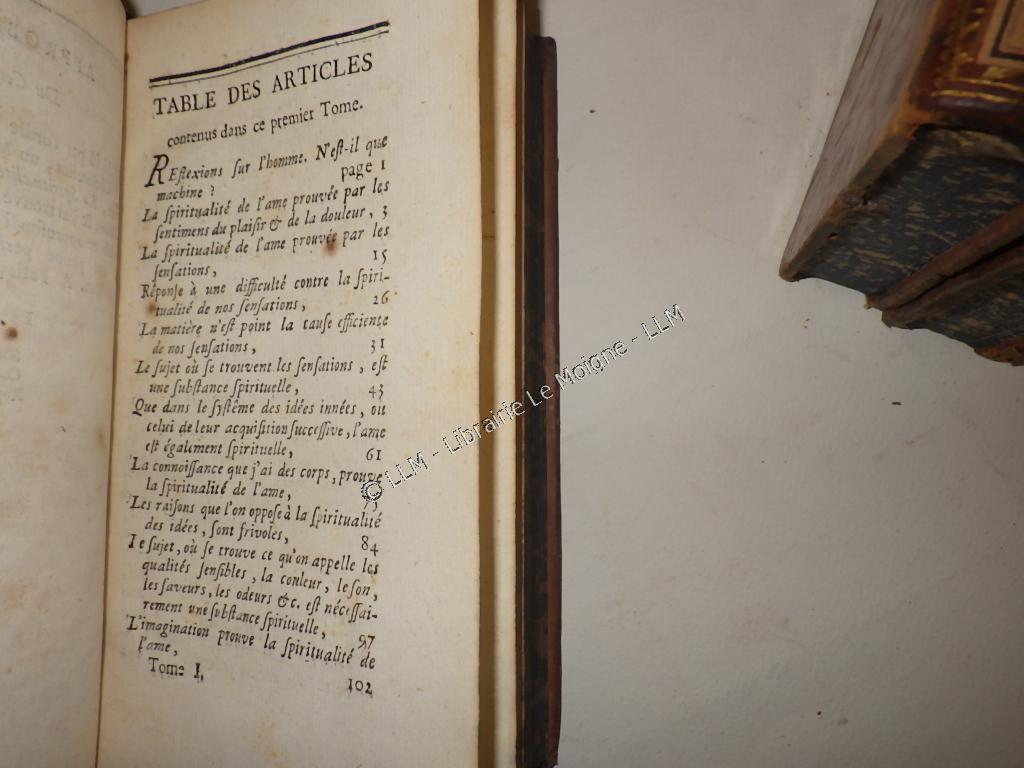 APPROB
TABLE DES ARTICLES
contenus dans ce premier Tome.
REflexions sur l'homme. N'est-il que
machine ? page 1
La spiritualité de l'ame prouvée par les
sentimens du plaisir & de la douleur, 3
La spiritualité de l'ame prouvée par les
sensations, 15
Réponse à une difficulté contre la spiri-
tualité de nos sensations, 26
La matière n'est point la cause efficiente
de nos sensations, 31
Le sujet où se trouvent les sensations, est
une substance spirituelle, 43
Que dans le systême des idées innées, ou
celui de leur acquisition successive, l'ame
est également spirituelle, 61
La connoissance que j'ai des corps, prouve
la spiritualité de l'ame,
Les raisons que l'on oppose à la spiritualité
des idées, sont frivoles, 84
Le sujet, où se trouve ce qu'on appelle les
qualités sensibles, la couleur, le son,
les saveurs, les odeurs &c. est nécessai-
rement une substance spirituelle, 97
L'imagination prouve la spiritualité de
l'ame, 102
Tome I.
© LLM - Librairie Le Moigne - LLM